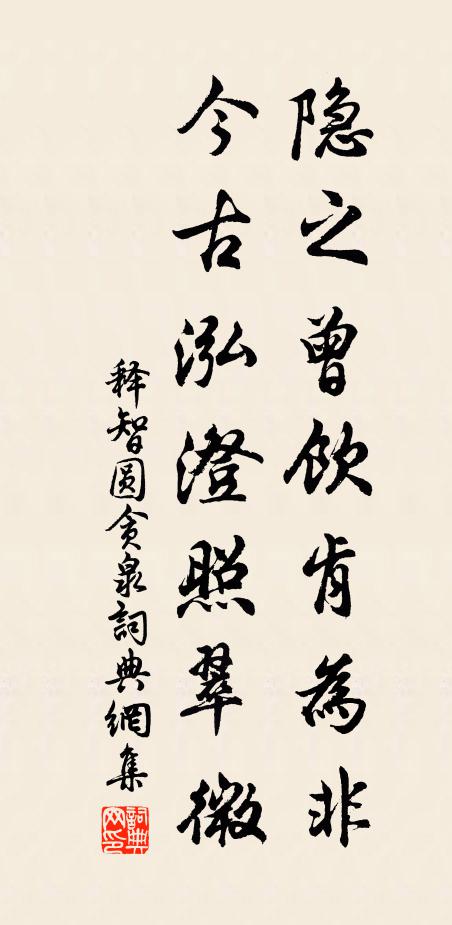 隐之曾饮肯為非
今古泓澄照翠微
释智圆贪泉詞典網集
詞典网印